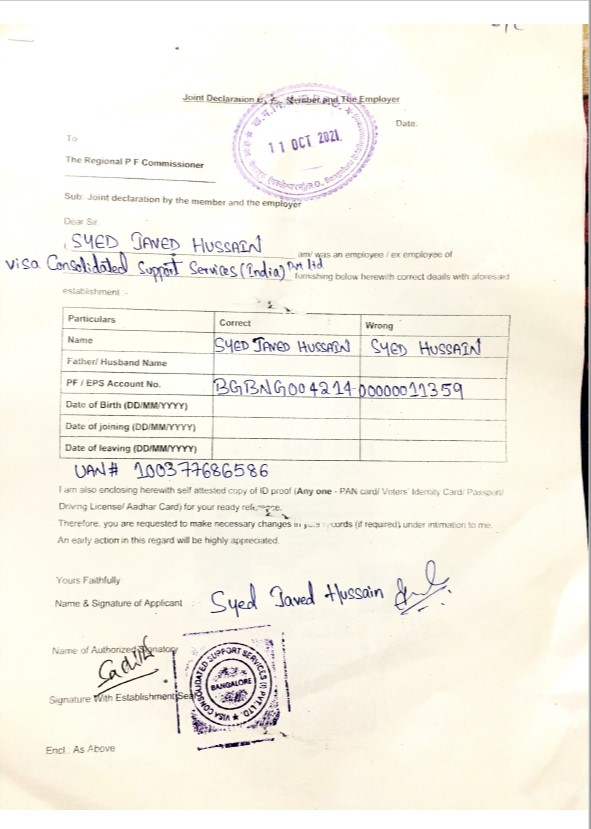 Joint Declaration Member and The Employer
11 OCT 2021
Date:
To
The Regional P F Commissioner
Sub: Joint declaration by the member and the employer
Dear Sir
I, SYED JAVED HUSSAIN am/ was an employee / ex employee of
Visa Consolidated Support Services (India) Pvt ltd furnishing below herewith correct deails with aforesaid
establishment :-
Particulars Correct Wrong
Name SYED JAVED HUSSAIN SYED HUSSAIN
Father/ Husband Name
PF / EPS Account No. BGBNG004214 00000011359
Date of Birth (DD/MM/YYYY)
Date of joining (DD/MM/YYYY)
Date of leaving (DD/MM/YYYY)
UAN# 100377686586
I am also enclosing herewith self attested copy of ID proof (Any one - PAN card/ Voters' Identity Card/ Passport/
Driving License/ Aadhar Card) for your ready reference.
Therefore, you are requested to make necessary changes in your records (if required) under intimation to me.
An early action in this regard will be highly appreciated.
Yours Faithfully
Name & Signature of Applicant Syed Javed Hussain
Name of Authorized Signatory
Signature With Establishment Seal
VISA CONSOLIDATED SUPPORT SERVICES (I) PVT. LTD.
BANGALORE
Encl.: As Above